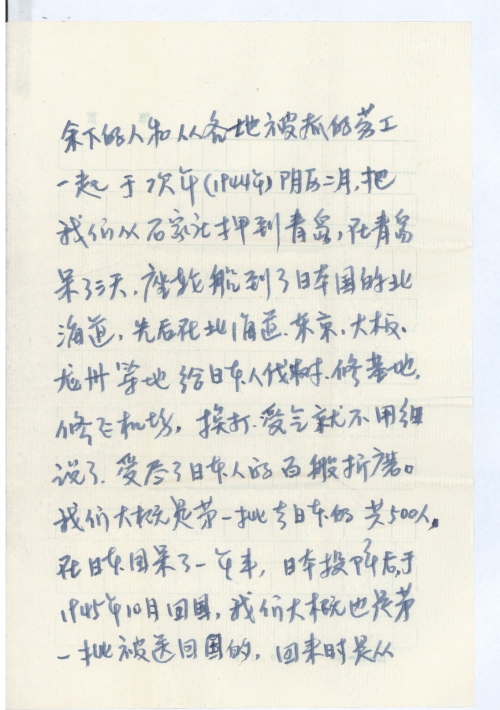 余下的人和从各地被抓的劳工
一起于次年(1944年)阴历二月,把
我们从石家庄押到青岛,在青岛
呆了三天,座轮船到了日本国的北
海道,先后在北海道、东京、大板、
九卅等地给日本人伐树、修基地、
修飞机场,挨打、受气就不用细
说了,受尽了日本人的百般折磨。
我们大概是第一批去日本的共500人,
在日本国呆了一年来,日本投降后,于
1945年10月回国,我们大概也是第
一批被送回国的,回来时是从